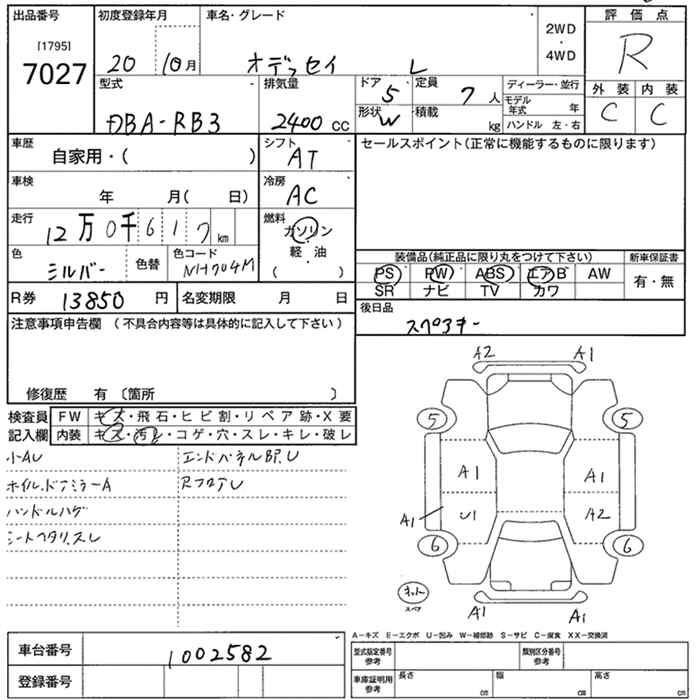 出品番号 初度登録年月 車名・グレード 2WD ・ 4WD 評価点
[1795]
7027 20 10月 オデッセイ L R
型式 排気量 ドア 5 定員 7人 ディーラー・並行 外装 内装
DBA-RB3 2400 CC 形状 W 積載 kg モデル年式 年 C C
ハンドル 左・右
車歴 自家用・( ) シフト AT セールスポイント(正常に機能するものに限ります)
車検 年 月( 日) 冷房 AC
走行 12万0千617km 燃料 ガソリン 軽・油 ( )
色 シルバー 色替 色コード NH704M
装備品(純正品に限り丸をつけて下さい) 新車保証書
PS PW ABS エアB AW 有・無
SR ナビ TV カワ
R券 13850円 名変期限 月 日 後日品
スペアキー
注意事項申告欄 (不具合内容等は具体的に記入して下さい)
修復歴 有 〔箇所 〕
検査員 FW キズ・飛石・ヒビ割・リペア跡・X要
記入欄 内装 キズ・汚レ・コゲ・穴・スレ・キレ・破レ
小AU エンドパネルBP.U
ホイル.ドアミラーA RフロアU
ハンドルハゲ
シートヘタリ.スレ
A2 A1
5 5
A1 A1
A1 U1 A2
6 6
スペア
A1 A1
A-キズ E-エクボ U-凹み W-補修跡 S-サビ C-腐食 XX-交換済
車台番号 1002582 型式指定番号 参考 類別区分番号 参考
登録番号 車庫証明用 参考 長さ cm 幅 cm 高さ cm